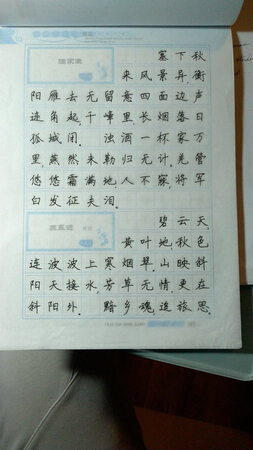 渔家傲
塞下秋
来风景异,衡
阳雁去无留意四面边声
连角起,千嶂里,长烟落日
孤城闭. 浊酒一杯家万
里,燕然未勒归无计,羌管
悠悠霜满地,人不寐,将军
白发征夫泪.
苏幕遮
碧云天,
黄叶地,秋色
连波,波上寒烟翠.山映斜
阳天接水,芳草无情,更在
斜阳外. 黯乡魂,追旅思,